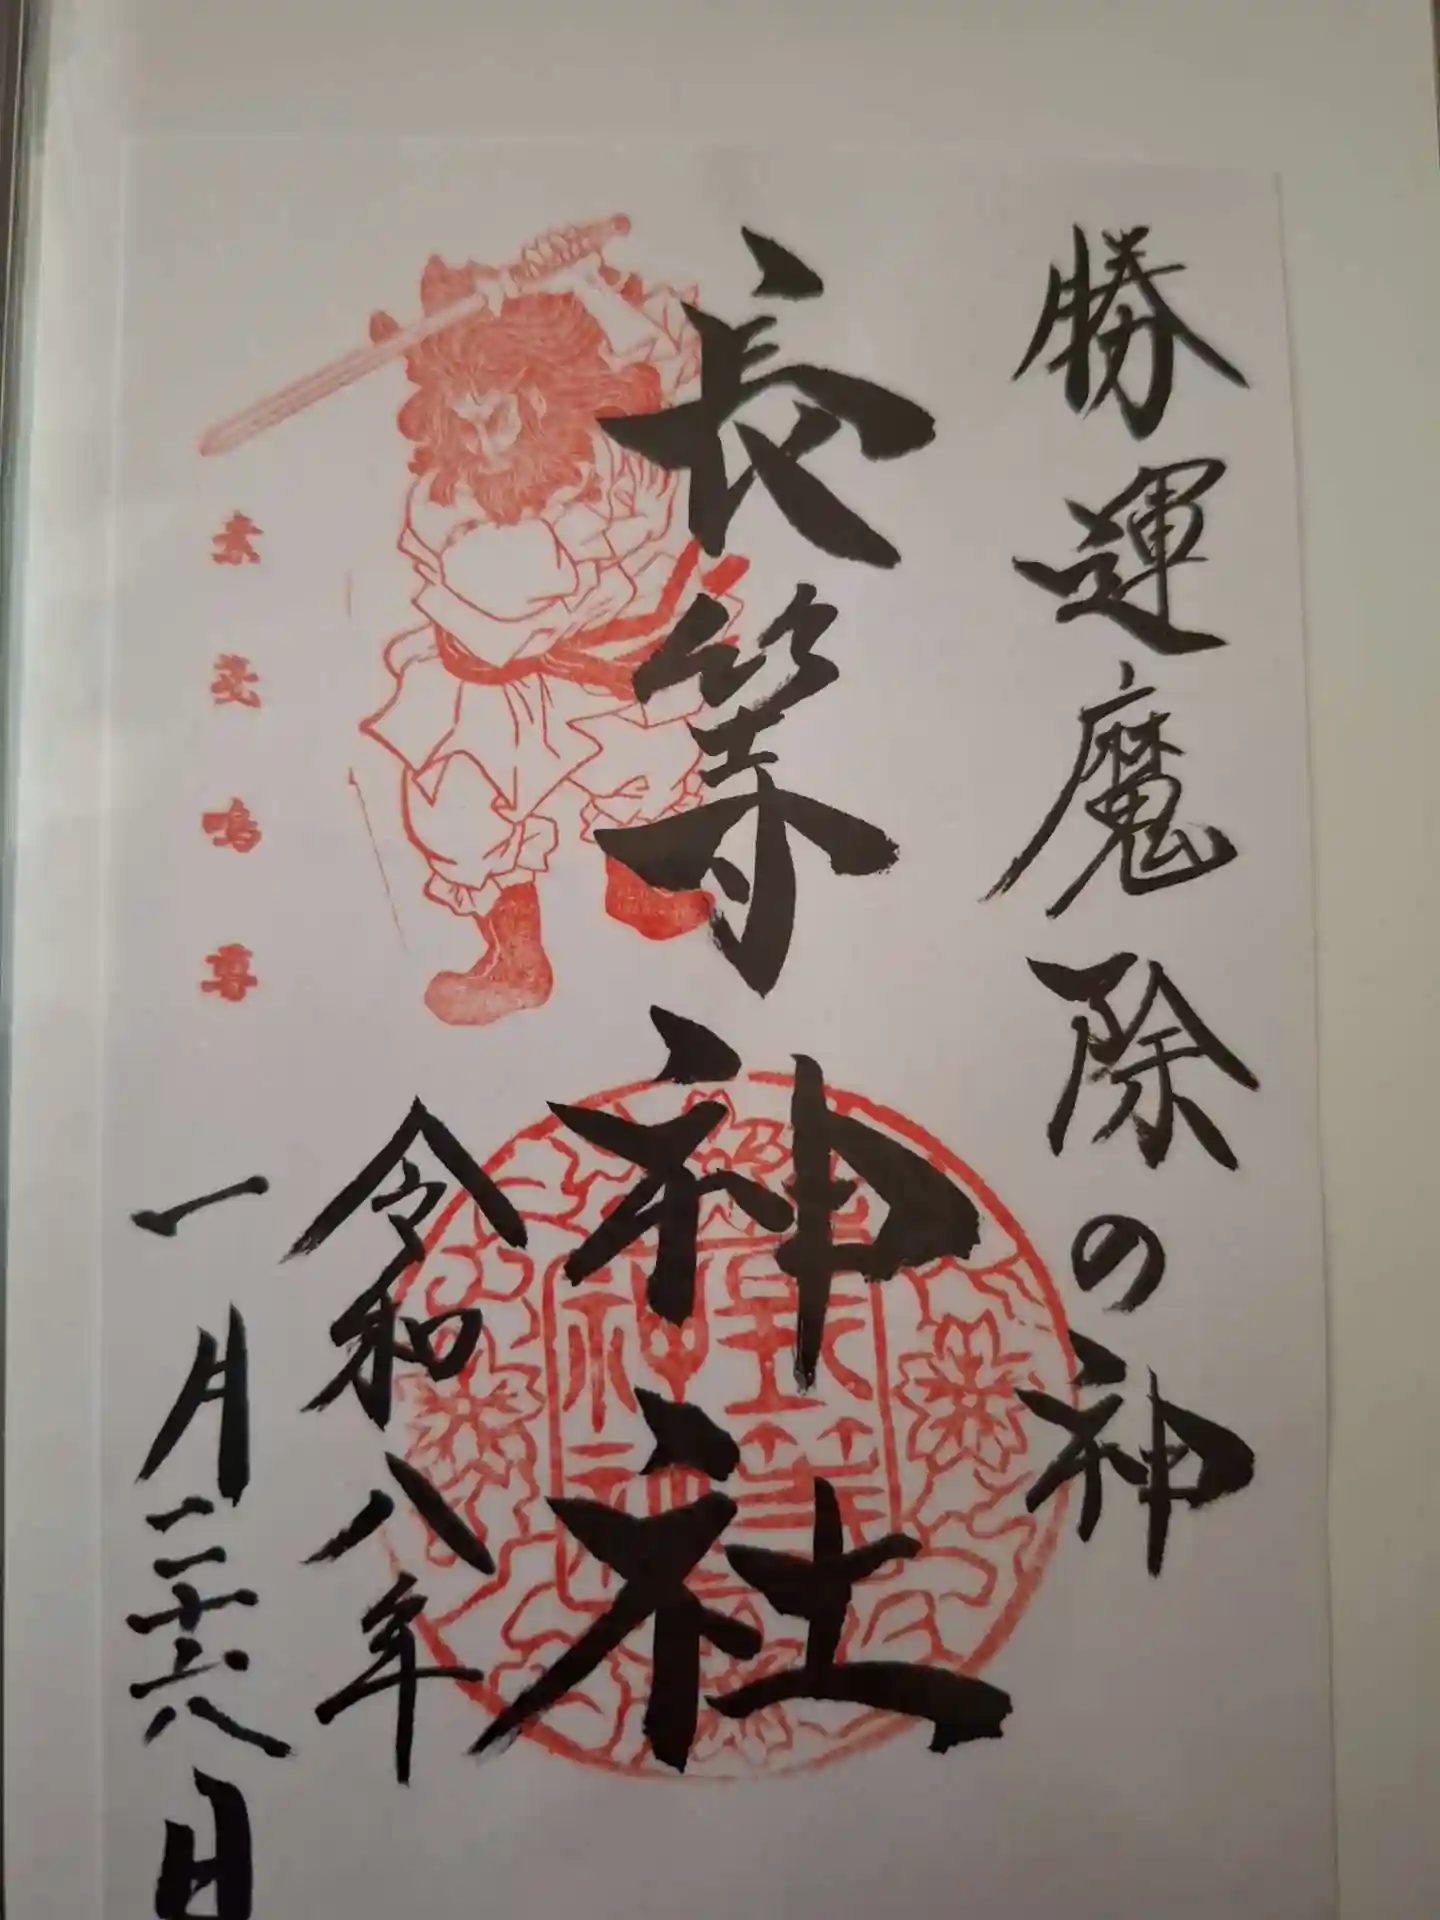 勝運魔除の神
長等神社
令和八年
一月二十六日
素戔嗚尊